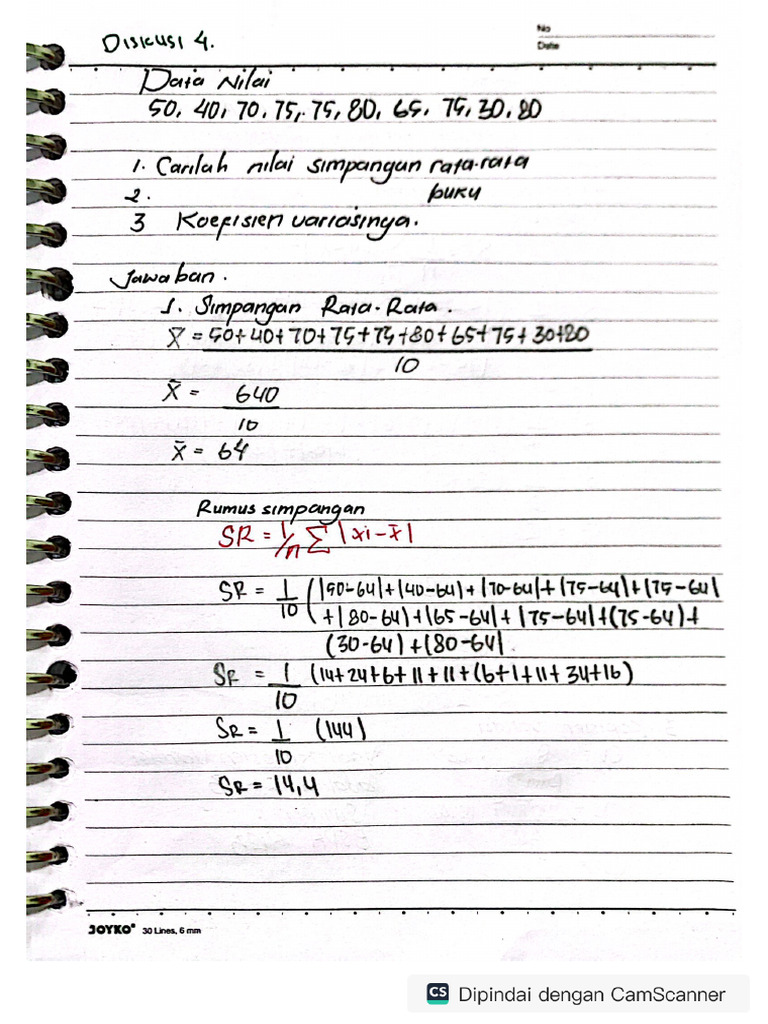 Diskusi 4.
No
Date
Data Nilai
50, 40, 70, 75, 75, 80, 65, 75, 30, 80
1. Carilah nilai simpangan rata-rata
2. buku
3 Koefisien variasinya.
Jawaban.
1. Simpangan Rata-Rata.
X̄ = 50+40+70+75+75+80+65+75+30+80
10
X̄ = 640
10
X̄ = 64
Rumus simpangan
SR = 1/n Σ |xi - x̄|
SR = 1 (|50-64|+|40-64|+|70-64|+|75-64|+|75-64|
10 +|80-64)+|65-64|+|75-64|+(75-64)+
(30-64)+(80-64|.
SR = 1 (14+24+6+11+11+(6+1+11+34+16)
10
SR = 1 (144)
10
SR = 14,4
JOYKO® 30 Lines, 6 mm
CS Dipindai dengan CamScanner